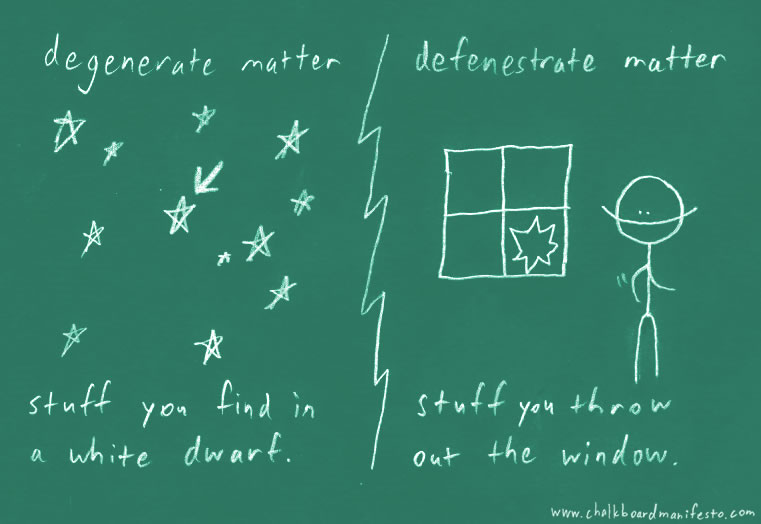 degenerate matter
stuff you find in
a white dwarf.
defenestrate matter
stuff you throw
out the window.
www.chalkboardmanifesto.com